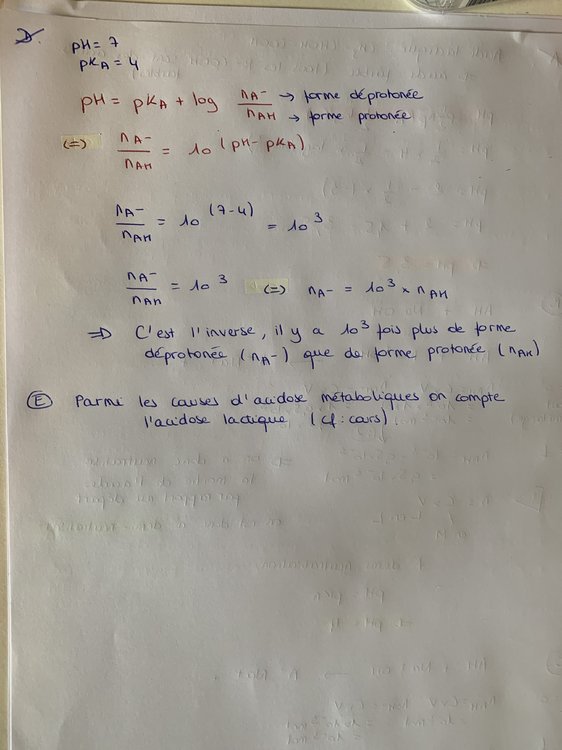 D.
pH = 7
pKA = 4
pH = pKA + log nA-/nAH → forme déprotonée
→ forme protonée
(=) nA-/nAH = 10^(pH-pKA)
nA-/nAH = 10^(7-4) = 10^3
nA-/nAH = 10^3 (=) nA- = 10^3 × nAH
⇒ C'est l'inverse, il y a 10^3 fois plus de forme
déprotonée (nA-) que de forme protonée (nAH)
E Parmi les causes d'acidose métaboliques on compte
l'acidose lactique (cf: cours).